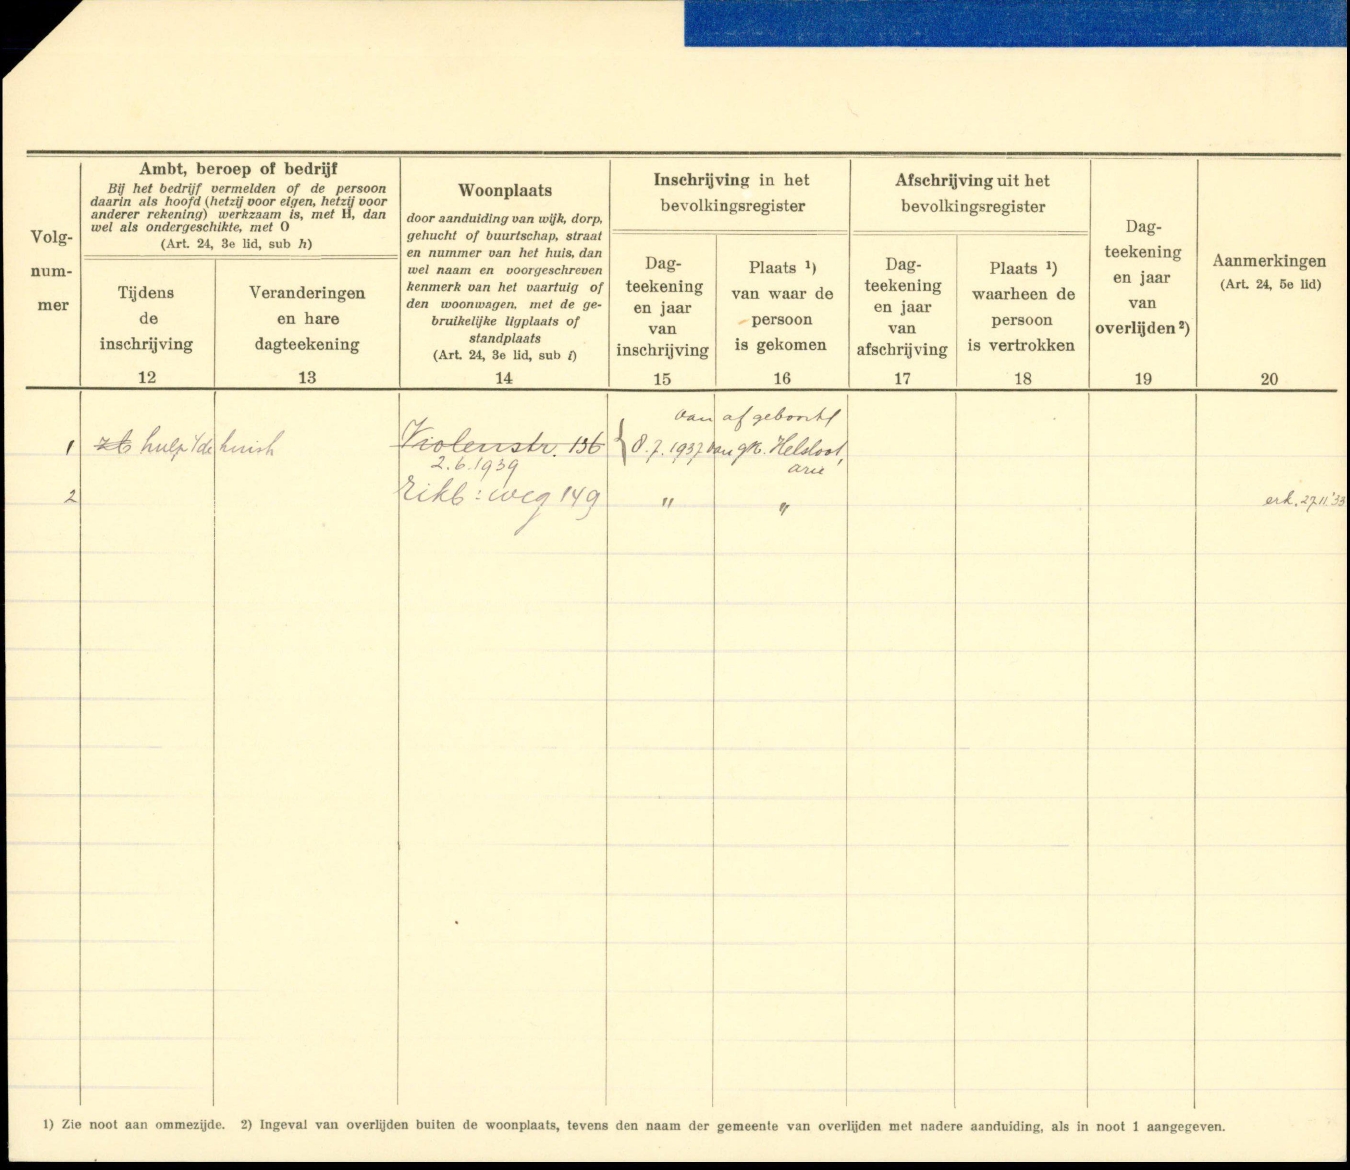 Volg-
num-
mer
Ambt, beroep of bedrijf
Bij het bedrijf vermelden of de persoon
daarin als hoofd (hetzij voor eigen, hetzij voor
anderer rekening) werkzaam is, met H, dan
wel als ondergeschikte, met O
(Art. 24, 3e lid, sub h)
Tijdens
de
inschrijving
12
Veranderingen
en hare
dagteekening
13
Woonplaats
door aanduiding van wijk, dorp,
gehucht of buurtschap, straat
en nummer van het huis, dan
wel naam en voorgeschreven
kenmerk van het vaartuig of
den woonwagen, met de ge-
bruikelijke ligplaats of
standplaats
(Art. 24, 3e lid, sub i)
14
Inschrijving in het
bevolkingsregister
Dag-
teekening
en jaar
van
inschrijving
15
Plaats 1)
van waar de
persoon
is gekomen
16
Afschrijving uit het
bevolkingsregister
Dag-
teekening
en jaar
van
afschrijving
17
Plaats 1)
waarheen de
persoon
is vertrokken
18
Dag-
teekening
en jaar
van
overlijden 2)
19
Aanmerkingen
(Art. 24, 5e lid)
20
van af geboorte
1 zb hulp i/de huish Violenstr. 136 { 8.7.1937 van gk. Helsloot,
2.6.1939 arie
2 Eikb: weg 149 " " erk. 27.11.'33
1) Zie noot aan ommezijde. 2) Ingeval van overlijden buiten de woonplaats, tevens den naam der gemeente van overlijden met nadere aanduiding, als in noot 1 aangegeven.